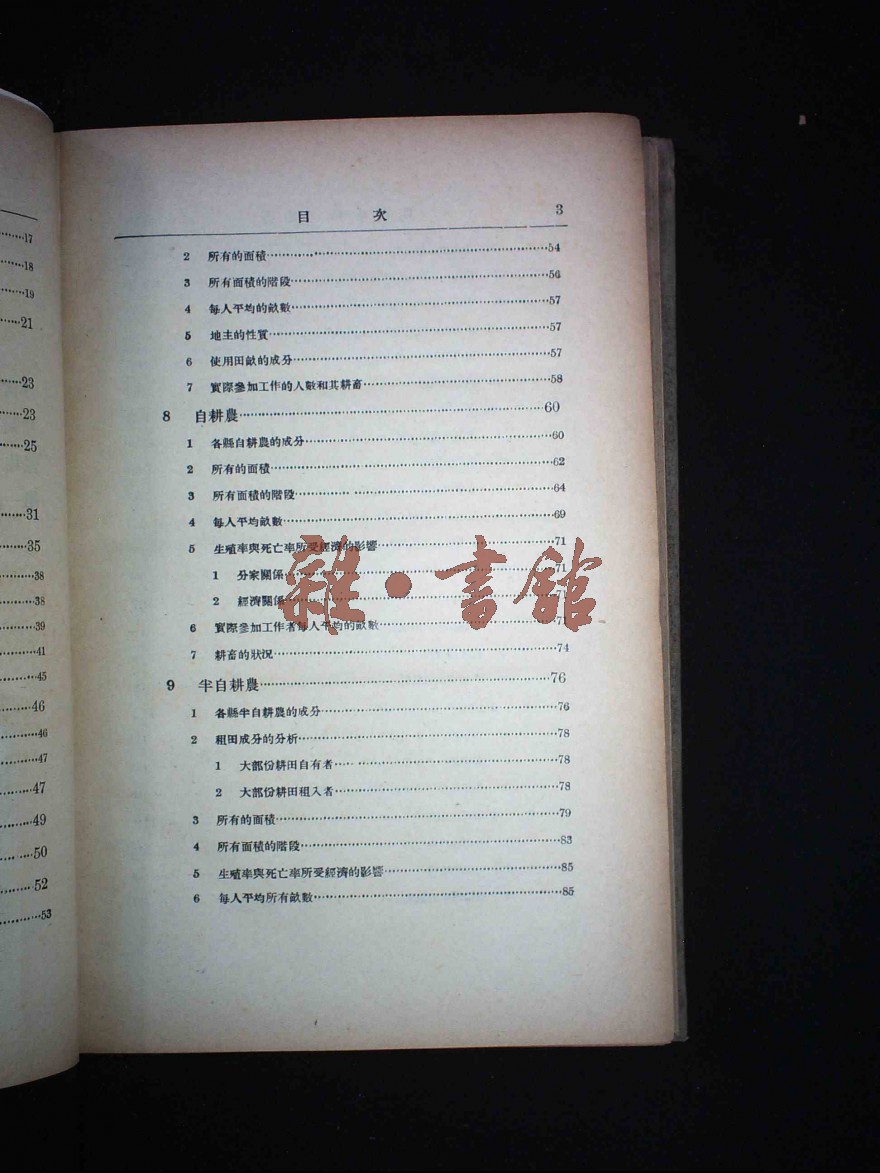 17
18
19
21
23
23
25
31
35
38
38
39
41
45
46
46
47
47
49
50
52
53
目 次 3
2 所有的面積 54
3 所有面積的階段 56
4 每人平均的畝數 57
5 地主的性質 57
6 使用田畝的成分 57
7 實際參加工作的人數和其耕畜 58
8 自耕農 60
1 各縣自耕農的成分 60
2 所有的面積 62
3 所有面積的階段 64
4 每人平均畝數 69
5 生殖率與死亡率所受經濟的影響 71
1 分家關係 71
2 經濟關係 71
6 實際參加工作者每人平均的畝數 71
7 耕畜的狀況 74
9 半自耕農 76
1 各縣半自耕農的成分 76
2 租田成分的分析 78
1 大部份耕田自有者 78
2 大部份耕田租入者 78
3 所有的面積 79
4 所有面積的階段 83
5 生殖率與死亡率所受經濟的影響 85
6 每人平均所有畝數 85
雜·書館